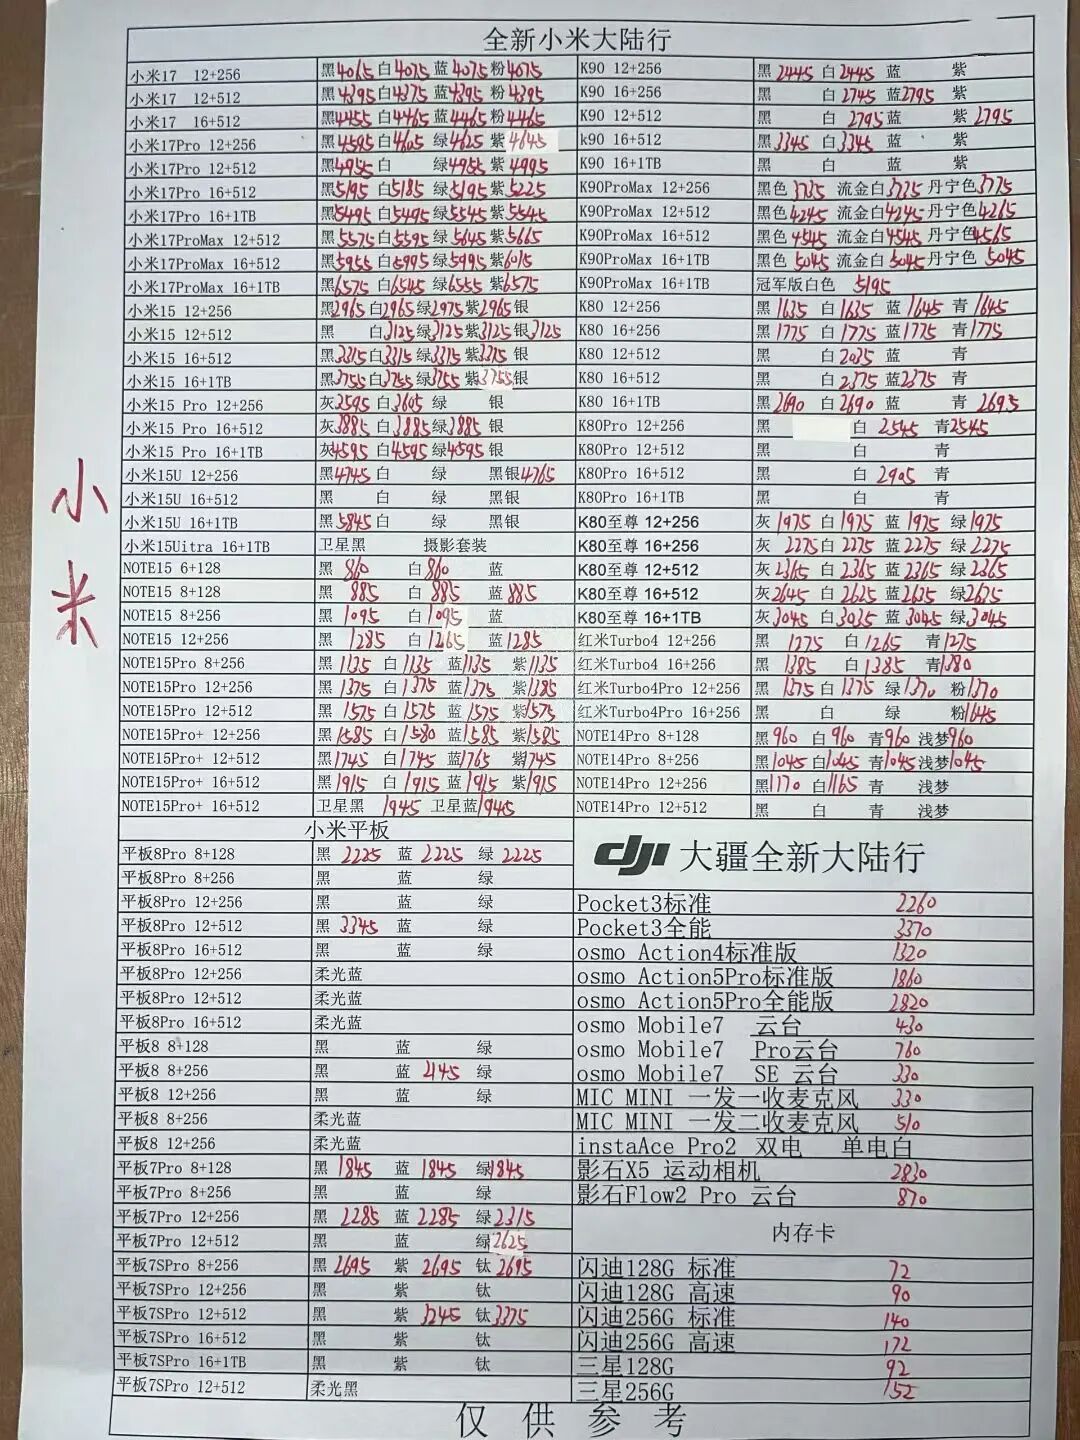 全新小米大陆行
小米17 12+256 黑4065 白4075 蓝4075 粉4075
小米17 12+512 黑4395 白4375 蓝4395 粉4395
小米17 16+512 黑4455 白4465 蓝4465 粉4465
小米17Pro 12+256 黑4595 白4605 绿4625 紫4645
小米17Pro 12+512 黑4955 白 绿4955 紫4995
小米17Pro 16+512 黑5195 白5185 绿5195 紫5225
小米17Pro 16+1TB 黑5495 白5495 绿5545 紫5545
小米17ProMax 12+512 黑5575 白5595 绿5645 紫5665
小米17ProMax 16+512 黑5955 白5995 绿5995 紫6015
小米17ProMax 16+1TB 黑6575 白6545 绿6555 紫6575
小米15 12+256 黑2965 白2965 绿2975 紫2965 银
小米15 12+512 黑 白3125 绿3125 紫3125 银3125
小米15 16+512 黑3315 白3315 绿3315 紫3315 银
小米15 16+1TB 黑3755 白3755 绿3755 紫3755 银
小米15 Pro 12+256 灰3595 白3605 绿 银
小米15 Pro 16+512 灰3885 白3885 绿3885 银
小米15 Pro 16+1TB 灰4595 白4595 绿4595 银
小米15U 12+256 黑4745 白 绿 黑银4765
小米15U 16+512 黑 白 绿 黑银
小米15U 16+1TB 黑5845 白 绿 黑银
小米15Uitra 16+1TB 卫星黑 摄影套装
NOTE15 6+128 黑 860 白860 蓝
NOTE15 8+128 黑 885 白 885 蓝885
NOTE15 8+256 黑 1095 白1095 蓝
NOTE15 12+256 黑 1285 白1265 蓝1285
NOTE15Pro 8+256 黑 1135 白1135 蓝1135 紫1135
NOTE15Pro 12+256 黑 1375 白1375 蓝1375 紫1385
NOTE15Pro 12+512 黑 1575 白1575 蓝1575 紫1575
NOTE15Pro+ 12+256 黑1585 白1580 蓝1585 紫1585
NOTE15Pro+ 12+512 黑1745 白1745 蓝1765 紫1745
NOTE15Pro+ 16+512 黑1915 白1915 蓝1915 紫1915
NOTE15Pro+ 16+512 卫星黑 1945 卫星蓝1945
K90 12+256 黑 2445 白2445 蓝 紫
K90 16+256 黑 白2745 蓝2795 紫
K90 12+512 黑 白 2795 蓝 紫 2795
k90 16+512 黑3345 白3345 蓝 紫
K90 16+1TB 黑 白 蓝 紫
K90ProMax 12+256 黑色 3735 流金白3735 丹宁色3775
K90ProMax 12+512 黑色4245 流金白4245 丹宁色4265
K90ProMax 16+512 黑色4545 流金白4545 丹宁色4565
K90ProMax 16+1TB 黑色 5045 流金白5045 丹宁色 5045
K90ProMax 16+1TB 冠军版白色 5195
K80 12+256 黑1635 白1635 蓝1645 青1645
K80 16+256 黑1775 白1775 蓝1775 青1775
K80 12+512 黑 白2035 蓝 青
K80 16+512 黑 白2375 蓝2375 青
K80 16+1TB 黑2690 白2690 蓝 青 2695
K80Pro 12+256 黑 白 2545 青2545
K80Pro 12+512 黑 白 青
K80Pro 16+512 黑 白 2905 青
K80Pro 16+1TB 黑 白 青
K80至尊 12+256 灰1975 白1975 蓝1975 绿1975
K80至尊 16+256 灰 2275 白2275 蓝2275 绿2275
K80至尊 12+512 灰2365 白2365 蓝2365 绿2365
K80至尊 16+512 灰2645 白2625 蓝2635 绿2635
K80至尊 16+1TB 灰3045 白3035 蓝3045 绿3045
红米Turbo4 12+256 黑 1275 白1265 青1275
红米Turbo4 16+256 黑 1385 白1385 青1380
红米Turbo4Pro 12+256 黑 1375 白1375 绿1370 粉1370
红米Turbo4Pro 16+256 黑 白 绿 粉1645
NOTE14Pro 8+128 黑960 白960 青960 浅梦960
NOTE14Pro 8+256 黑1045 白1045 青1045 浅梦1045
NOTE14Pro 12+256 黑1170 白1165 青 浅梦
NOTE14Pro 12+512 黑 白 青 浅梦
小米
小米平板
平板8Pro 8+128 黑 2225 蓝 2225 绿 2225
平板8Pro 8+256 黑 蓝 绿
平板8Pro 12+256 黑 蓝 绿
平板8Pro 12+512 黑 3345 蓝 绿
平板8Pro 16+512 黑 蓝 绿
平板8Pro 12+256 柔光蓝
平板8Pro 12+512 柔光蓝
平板8Pro 16+512 柔光蓝
平板8 8+128 黑 蓝 绿
平板8 8+256 黑 蓝 2145 绿
平板8 12+256 黑 蓝 绿
平板8 8+256 柔光蓝
平板8 12+256 柔光蓝
平板7Pro 8+128 黑 1845 蓝 1845 绿1845
平板7Pro 8+256 黑 蓝 绿
平板7Pro 12+256 黑 2285 蓝 2285 绿2315
平板7Pro 12+512 黑 蓝 绿2625
平板7SPro 8+256 黑 2695 紫 2695 钛 2695
平板7SPro 12+256 黑 紫 钛
平板7SPro 12+512 黑 紫 3245 钛3375
平板7SPro 16+512 黑 紫 钛
平板7SPro 16+1TB 黑 紫 钛
平板7SPro 12+512 柔光黑
dji 大疆全新大陆行
Pocket3标准 2260
Pocket3全能 3370
osmo Action4标准版 1320
osmo Action5Pro标准版 1860
osmo Action5Pro全能版 2820
osmo Mobile7 云台 430
osmo Mobile7 Pro云台 760
osmo Mobile7 SE 云台 330
MIC MINI 一发一收麦克风 330
MIC MINI 一发二收麦克风 510
instaAce Pro2 双电 单电白
影石X5 运动相机 2830
影石Flow2 Pro 云台 870
内存卡
闪迪128G 标准 72
闪迪128G 高速 90
闪迪256G 标准 140
闪迪256G 高速 172
三星128G 92
三星256G 152
仅供参考